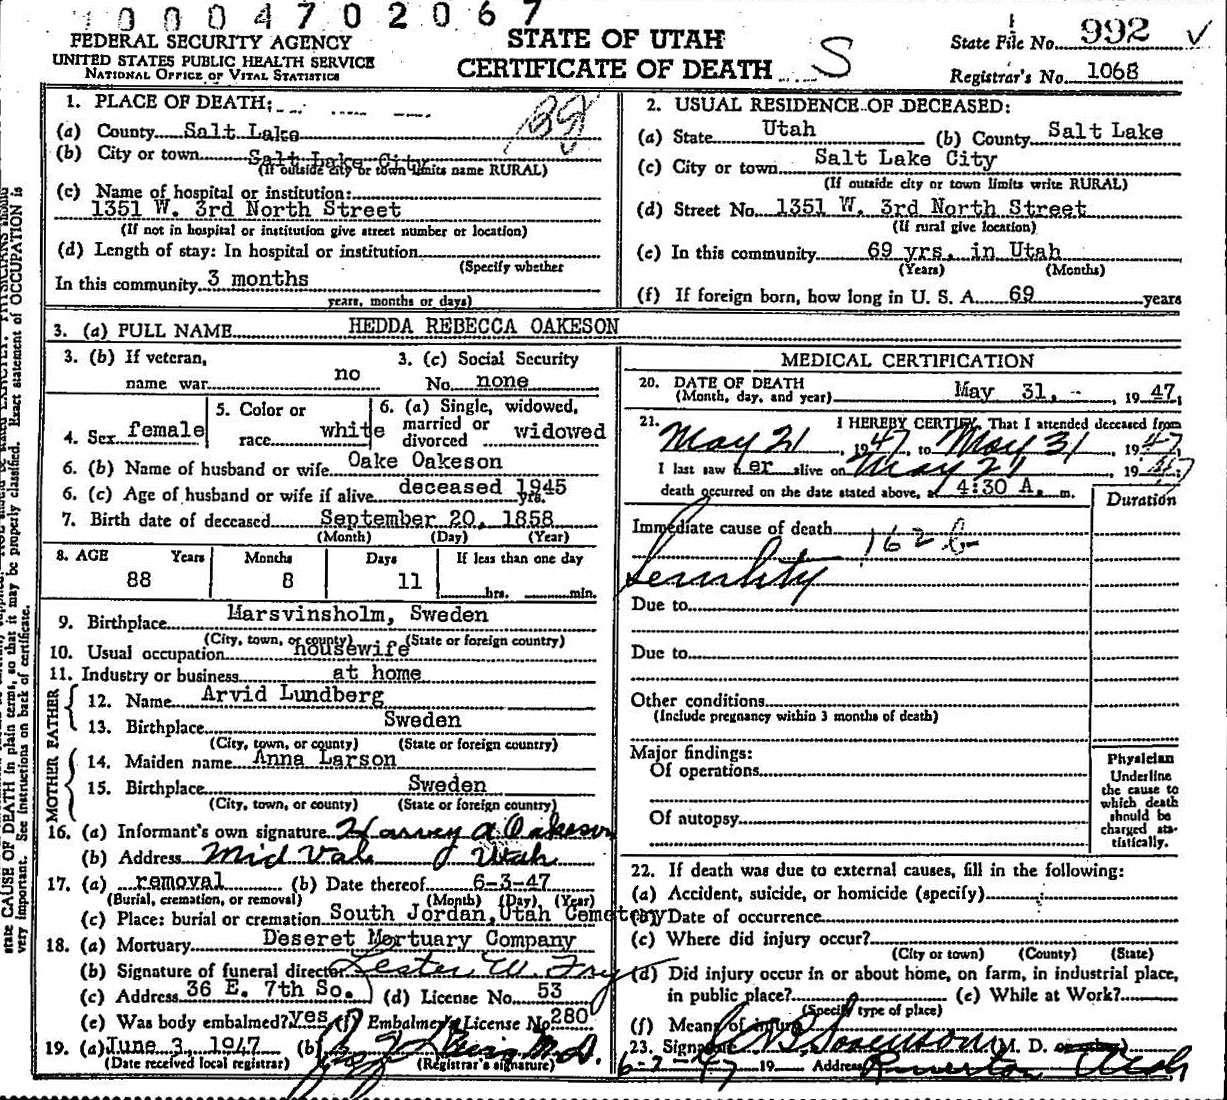 1000 4702067
FEDERAL SECURITY AGENCY
UNITED STATES PUBLIC HEALTH SERVICE
NATIONAL OFFICE OF VITAL STATISTICS
STATE OF UTAH
CERTIFICATE OF DEATH S
State File No. 992 ✓
Registrar's No. 1068
state CAUSE OF DEATH in plain terms, so that it may be properly classified. Exact statement of OCCUPATION is
very important. See instructions on back of certificate.
1. PLACE OF DEATH:
(a) County Salt Lake
(b) City or town Salt Lake City
(If outside city or town limits name RURAL)
(c) Name of hospital or institution:
1351 W. 3rd North Street
(If not in hospital or institution give street number or location)
(d) Length of stay: In hospital or institution
(Specify whether
In this community 3 months
years, months or days)
2. USUAL RESIDENCE OF DECEASED:
(a) State Utah (b) County Salt Lake
(c) City or town Salt Lake City
(If outside city or town limits write RURAL)
(d) Street No. 1351 W. 3rd North Street
(If rural give location)
(e) In this community 69 yrs. in Utah
(Years) (Months)
(f) If foreign born, how long in U. S. A. 69 years
3. (a) FULL NAME HEDDA REBECCA OAKESON
3. (b) If veteran,
name war no
3. (c) Social Security
No. none
4. Sex female
5. Color or
race white
6. (a) Single, widowed,
married or
divorced widowed
6. (b) Name of husband or wife Oake Oakeson
6. (c) Age of husband or wife if alive deceased 1945 yrs.
7. Birth date of deceased September 20, 1858
(Month) (Day) (Year)
8. AGE Years Months Days If less than one day
88 8 11 hrs. min.
9. Birthplace Marsvinsholm, Sweden
(City, town, or county) (State or foreign country)
10. Usual occupation housewife
11. Industry or business at home
FATHER
12. Name Arvid Lundberg
13. Birthplace Sweden
(City, town, or county) (State or foreign country)
MOTHER
14. Maiden name Anna Larson
15. Birthplace Sweden
(City, town, or county) (State or foreign country)
16. (a) Informant's own signature Harvey A Oakeson
(b) Address Mid Vale Utah
17. (a) removal (b) Date thereof 6-3-47
(Burial, cremation, or removal) (Month) (Day) (Year)
(c) Place: burial or cremation South Jordan, Utah Cemetery
18. (a) Mortuary Deseret Mortuary Company
(b) Signature of funeral director Lester W. Fry
(c) Address 36 E. 7th So. (d) License No. 53
(e) Was body embalmed? yes (f) Embalmer's License No. 280
19. (a) June 3, 1947 (b) M.D.
(Date received local registrar) (Registrar's signature)
MEDICAL CERTIFICATION
20. DATE OF DEATH
(Month, day, and year) May 31, 1947.
21. I HEREBY CERTIFY, That I attended deceased from
May 21, 1947, to May 31, 1947.
I last saw her alive on May 21 1947;
death occurred on the date stated above, at 4:30 A. m.
Duration
Immediate cause of death 162 b
Senility
Due to
Due to
Other conditions
(Include pregnancy within 3 months of death)
Major findings:
Of operations
Of autopsy
Physician
Underline
the cause to
which death
should be
charged sta-
tistically.
22. If death was due to external causes, fill in the following:
(a) Accident, suicide, or homicide (specify)
(b) Date of occurrence
(c) Where did injury occur?
(City or town) (County) (State)
(d) Did injury occur in or about home, on farm, in industrial place,
in public place? (e) While at Work?
(Specify type of place)
(f) Means of injury
23. Signature Sorenson (M. D.
6-2-47 19 Address Riverton Utah